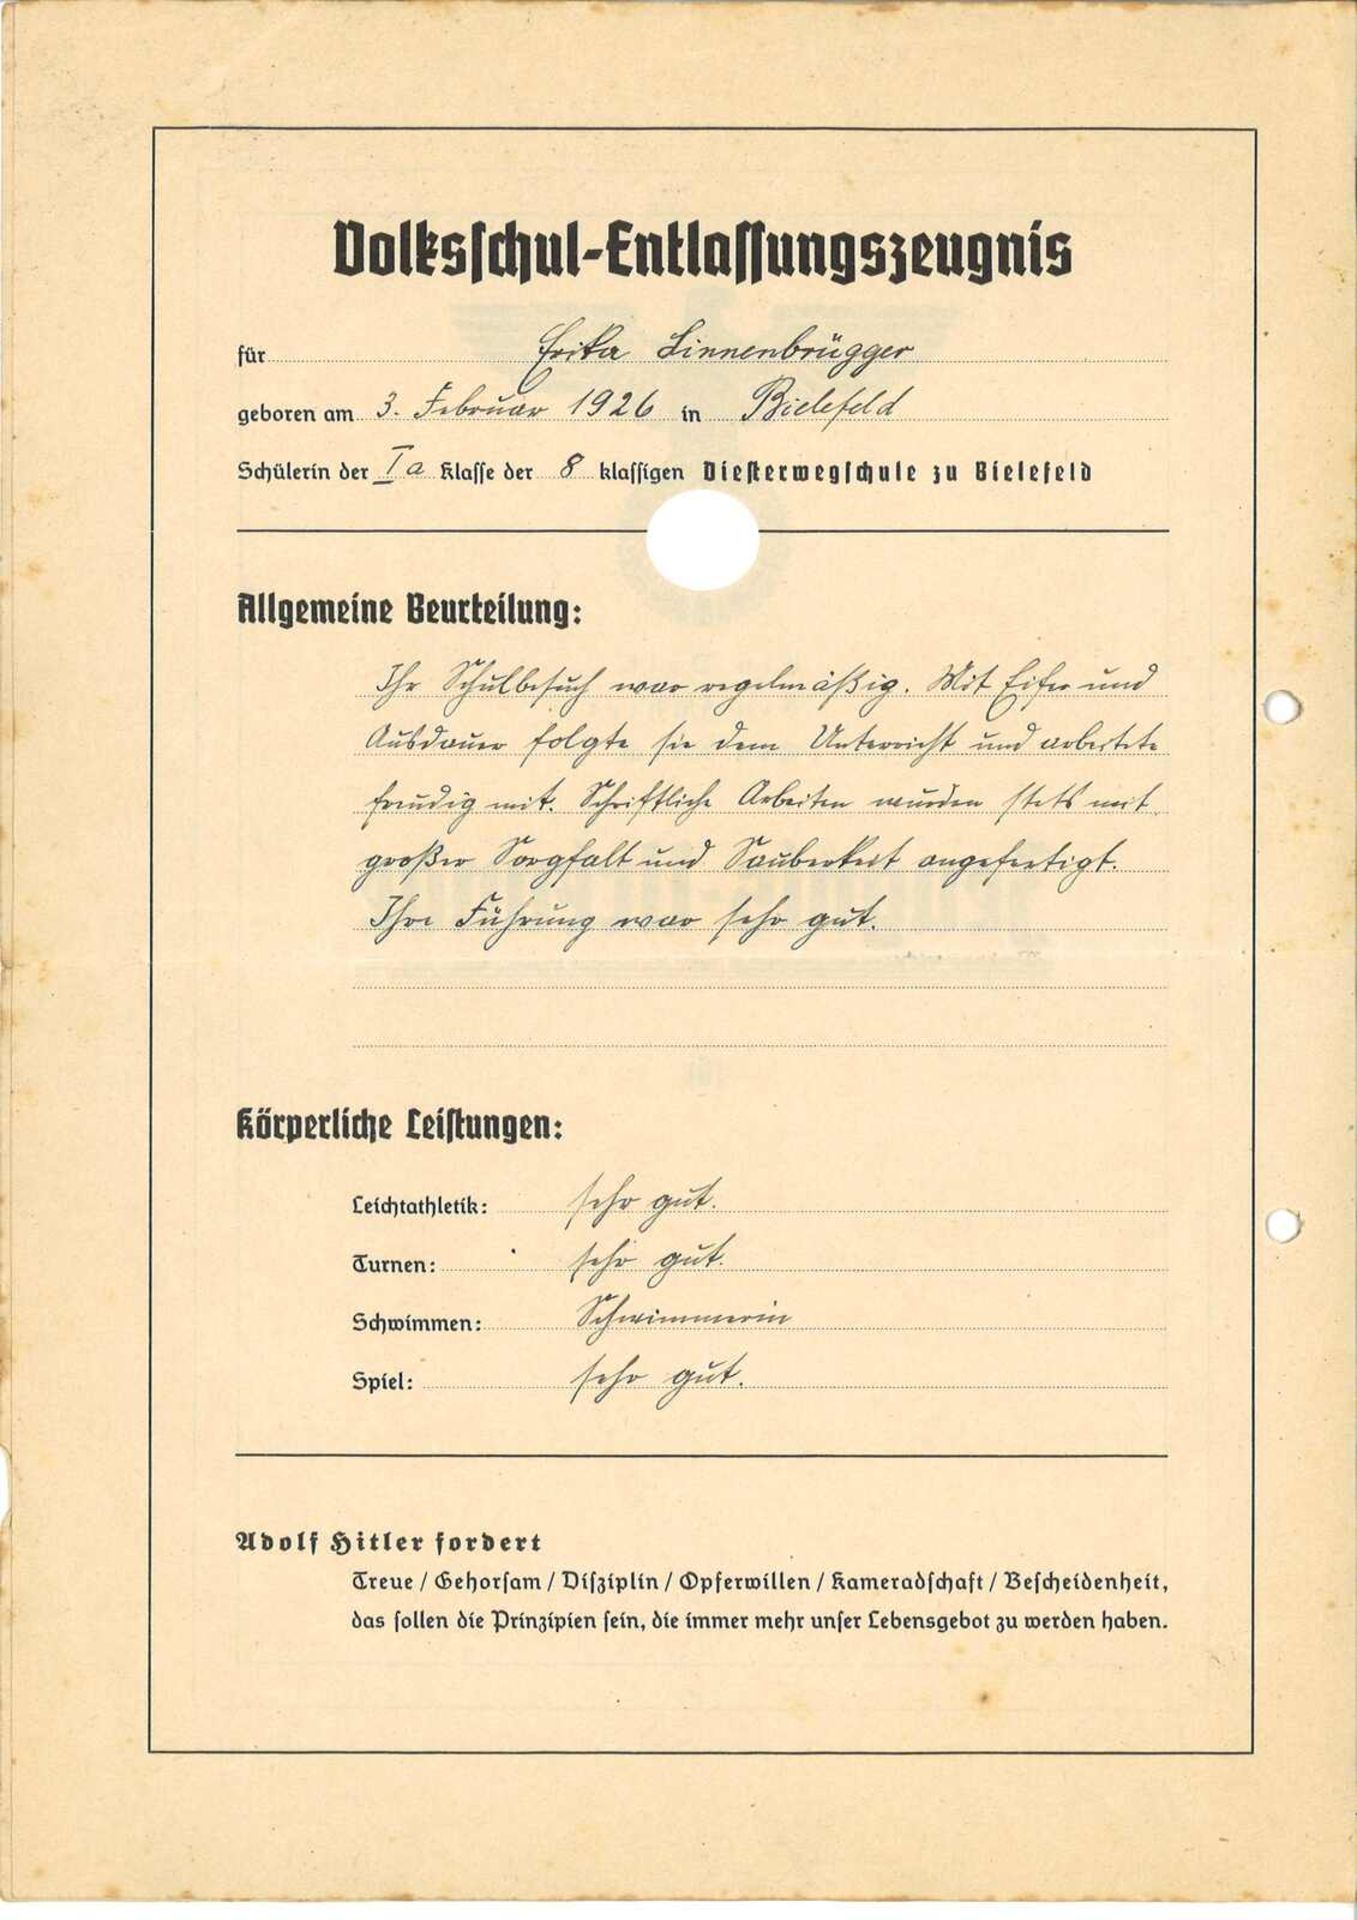 Volksschul-Entlassungszeugnis
für Erika Linnenbrügger
geboren am 3. Februar 1926 in Bielefeld
Schülerin der Ia Klasse der 8 klassigen Diesterwegschule zu Bielefeld
Allgemeine Beurteilung:
Ihr Schulbesuch war regelmäßig. Mit Eifer und
Ausdauer folgte sie dem Unterricht und arbeitete
freudig mit. Schriftliche Arbeiten wurden stets mit
großer Sorgfalt und Sauberkeit angefertigt.
Ihre Führung war sehr gut.
Körperliche Leistungen:
Leichtathletik: sehr gut.
Turnen: sehr gut.
Schwimmen: Schwimmerin
Spiel: sehr gut.
Adolf Hitler fordert
Treue / Gehorsam / Disziplin / Opferwillen / Kameradschaft / Bescheidenheit,
das sollen die Prinzipien sein, die immer mehr unser Lebensgebot zu werden haben.